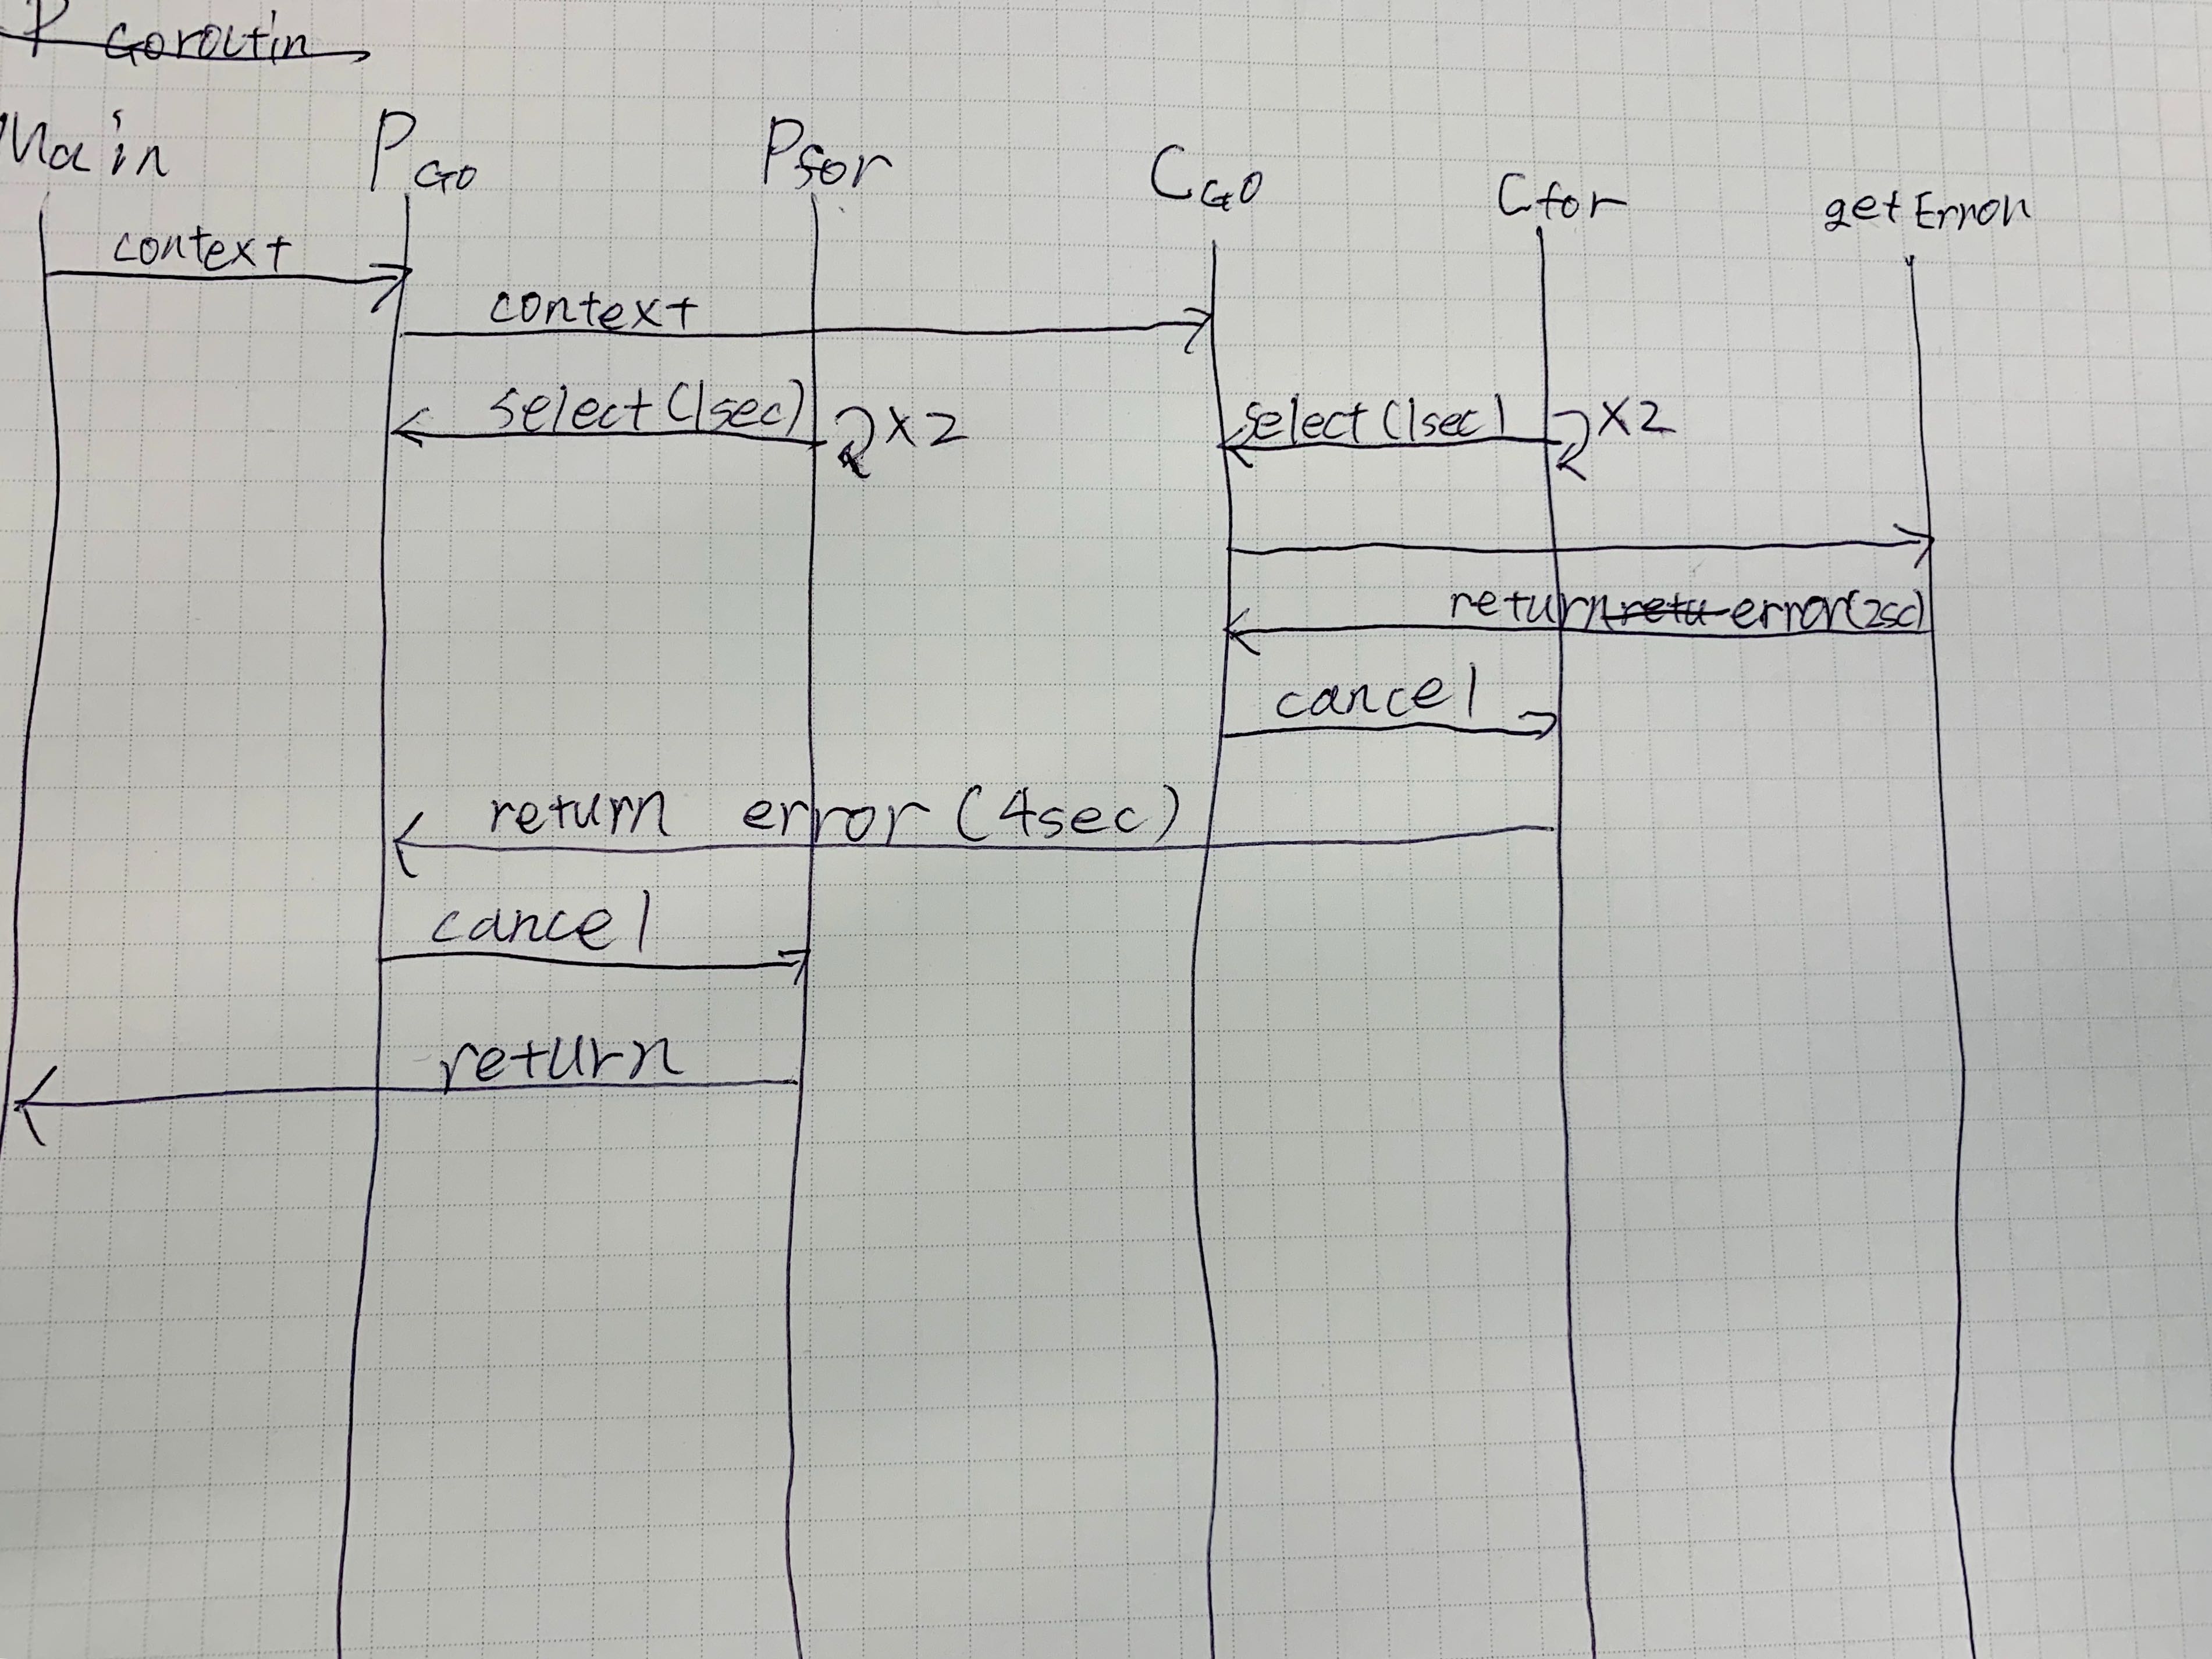 P Goroutin
Main PGO Pfor CGO Cfor getError
context
context
select (1sec) x2 select (1sec) x2
return retu error(2sc)
cancel
return error (4sec)
cancel
return